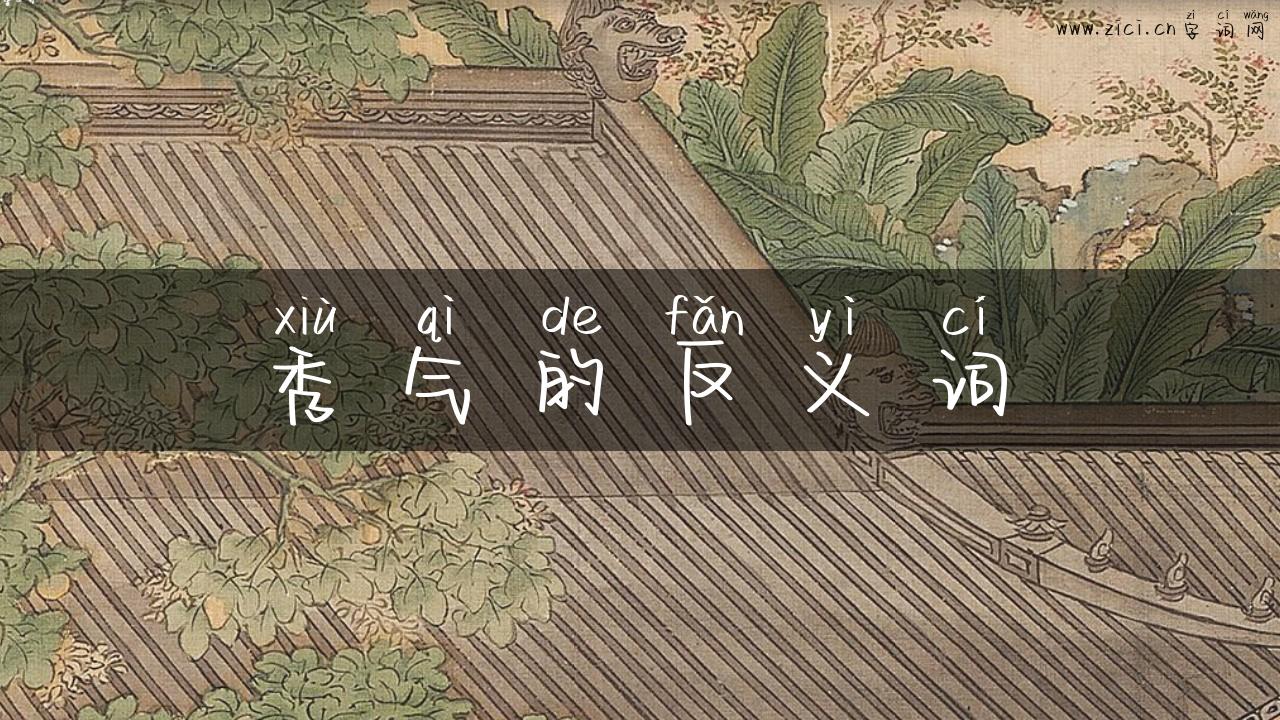 zì cí wǎng
www.zici.cn 字词网
xiù qì de fǎn yì cí
秀气的反义词